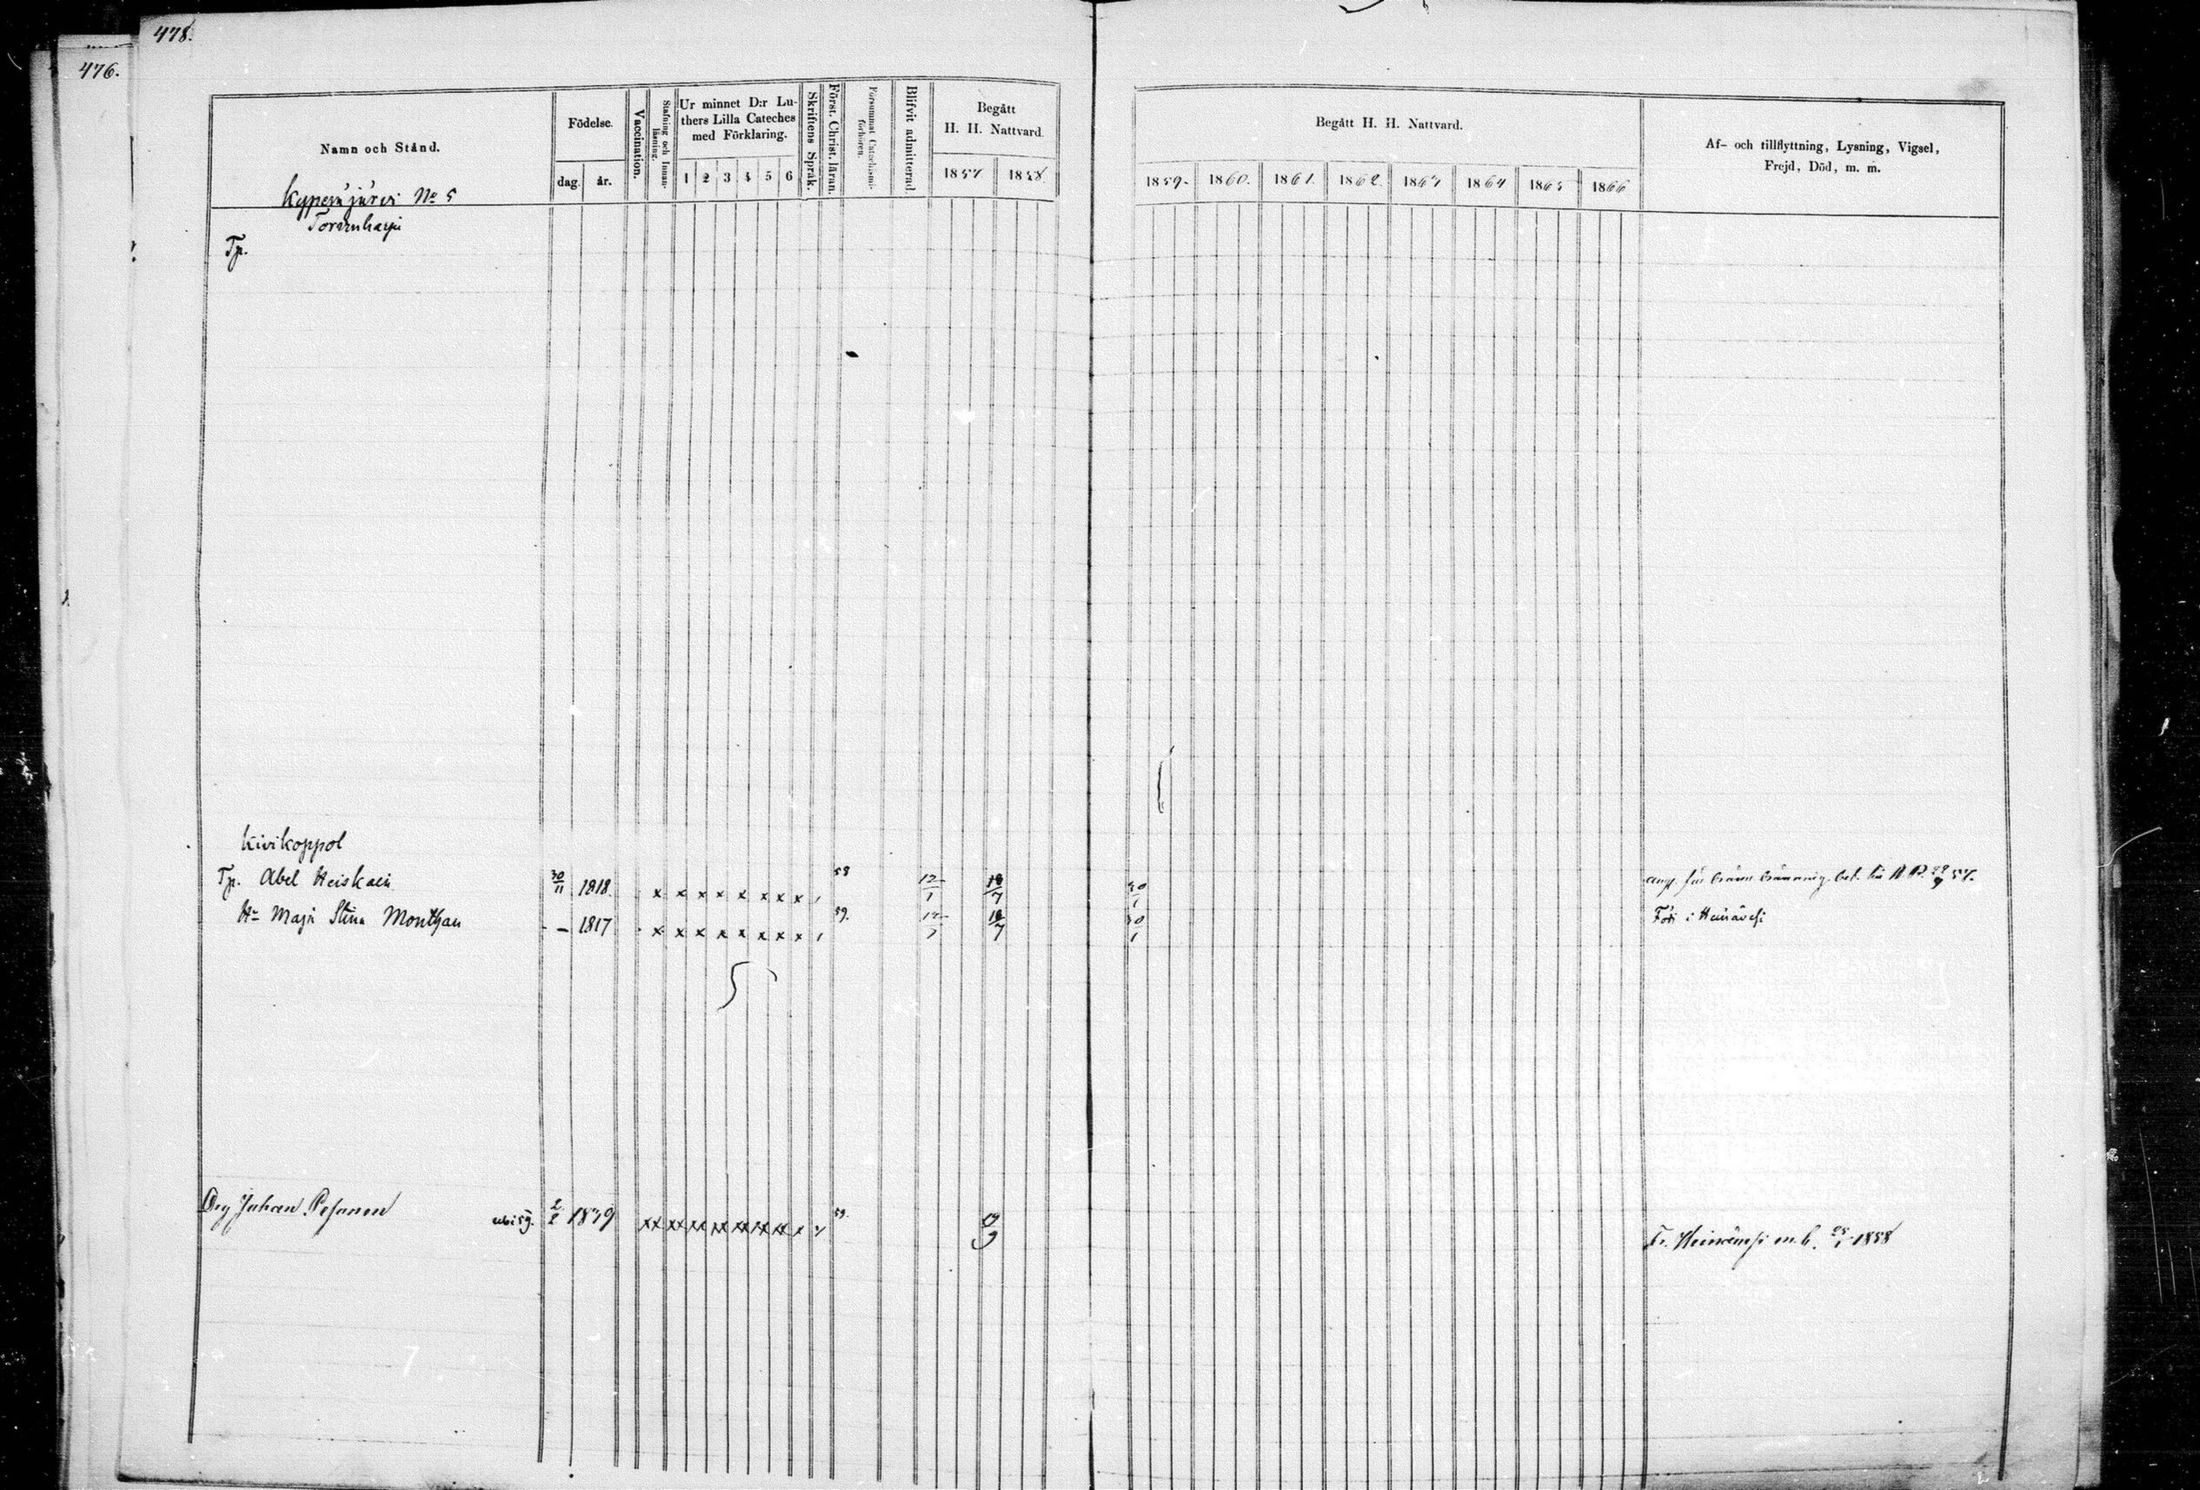 478.
476.
Namn och Stånd.
Födelse.
dag. år.
Vaccination.
Stafning och Innanläsning.
Ur minnet D:r Luthers Lilla Cateches med Förklaring.
1 2 3 4 5 6
Skriftens Språk.
Först. Christ. läran.
Försummat Catechismiförhören.
Blifvit admitterad
Begått H. H. Nattvard.
1857 1858
Begått H. H. Nattvard.
1859. 1860. 1861. 1862. 1863 1864 1865 1866
Af- och tillflyttning, Lysning, Vigsel, Frejd, Död, m. m.
No 5
Tp.
Kivikoppol
Tp. Abel Heiskain 30/11 1818. x x x x x x x x 58 12/1 18/7 30/1
Hu Maja Stina Monthan - 1817 x x x x x x x x 59. 12/1 18/7 30/1 i Heinävesi
Drg Johan Pesonen 2/2 1839 xx xx xx xx xx xx xx x 59. m. b. 1858